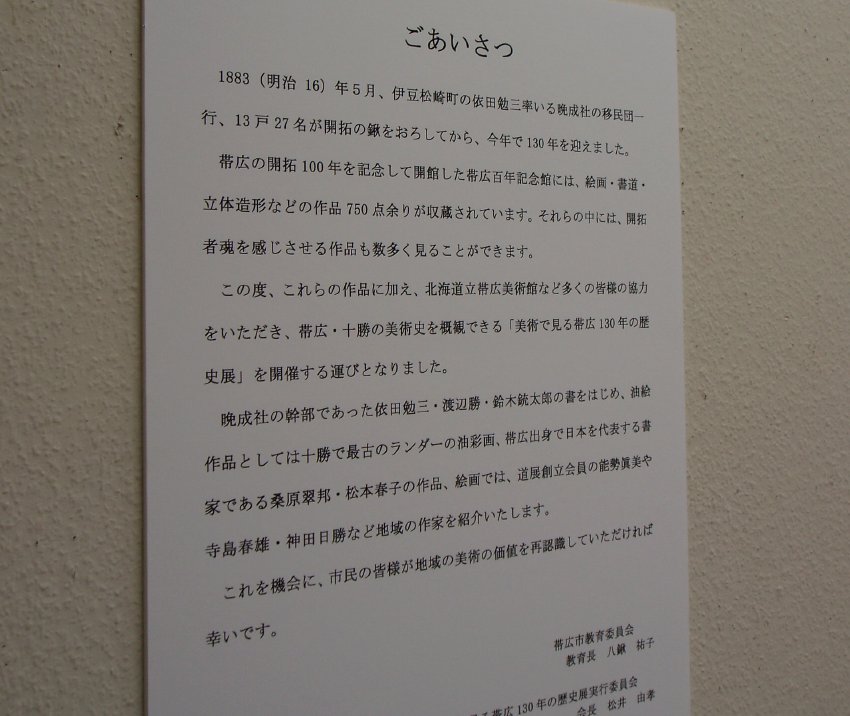 ごあいさつ
1883（明治 16）年5月、伊豆松崎町の依田勉三率いる晩成社の移民団一
行、13戸27名が開拓の鍬をおろしてから、今年で130年を迎えました。
帯広の開拓100年を記念して開館した帯広百年記念館には、絵画・書道・
立体造形などの作品750点余りが収蔵されています。それらの中には、開拓
者魂を感じさせる作品も数多く見ることができます。
この度、これらの作品に加え、北海道立帯広美術館など多くの皆様の協力
をいただき、帯広・十勝の美術史を概観できる「美術で見る帯広130年の歴
史展」を開催する運びとなりました。
晩成社の幹部であった依田勉三・渡辺勝・鈴木銃太郎の書をはじめ、油絵
作品としては十勝で最古のランダーの油彩画、帯広出身で日本を代表する書
家である桑原翠邦・松本春子の作品、絵画では、道展創立会員の能勢眞美や
寺島春雄・神田日勝など地域の作家を紹介いたします。
これを機会に、市民の皆様が地域の美術の価値を再認識していただければ
幸いです。
帯広市教育委員会
教育長 八鍬 祐子
る帯広130年の歴史展実行委員会
会長 松井 由孝